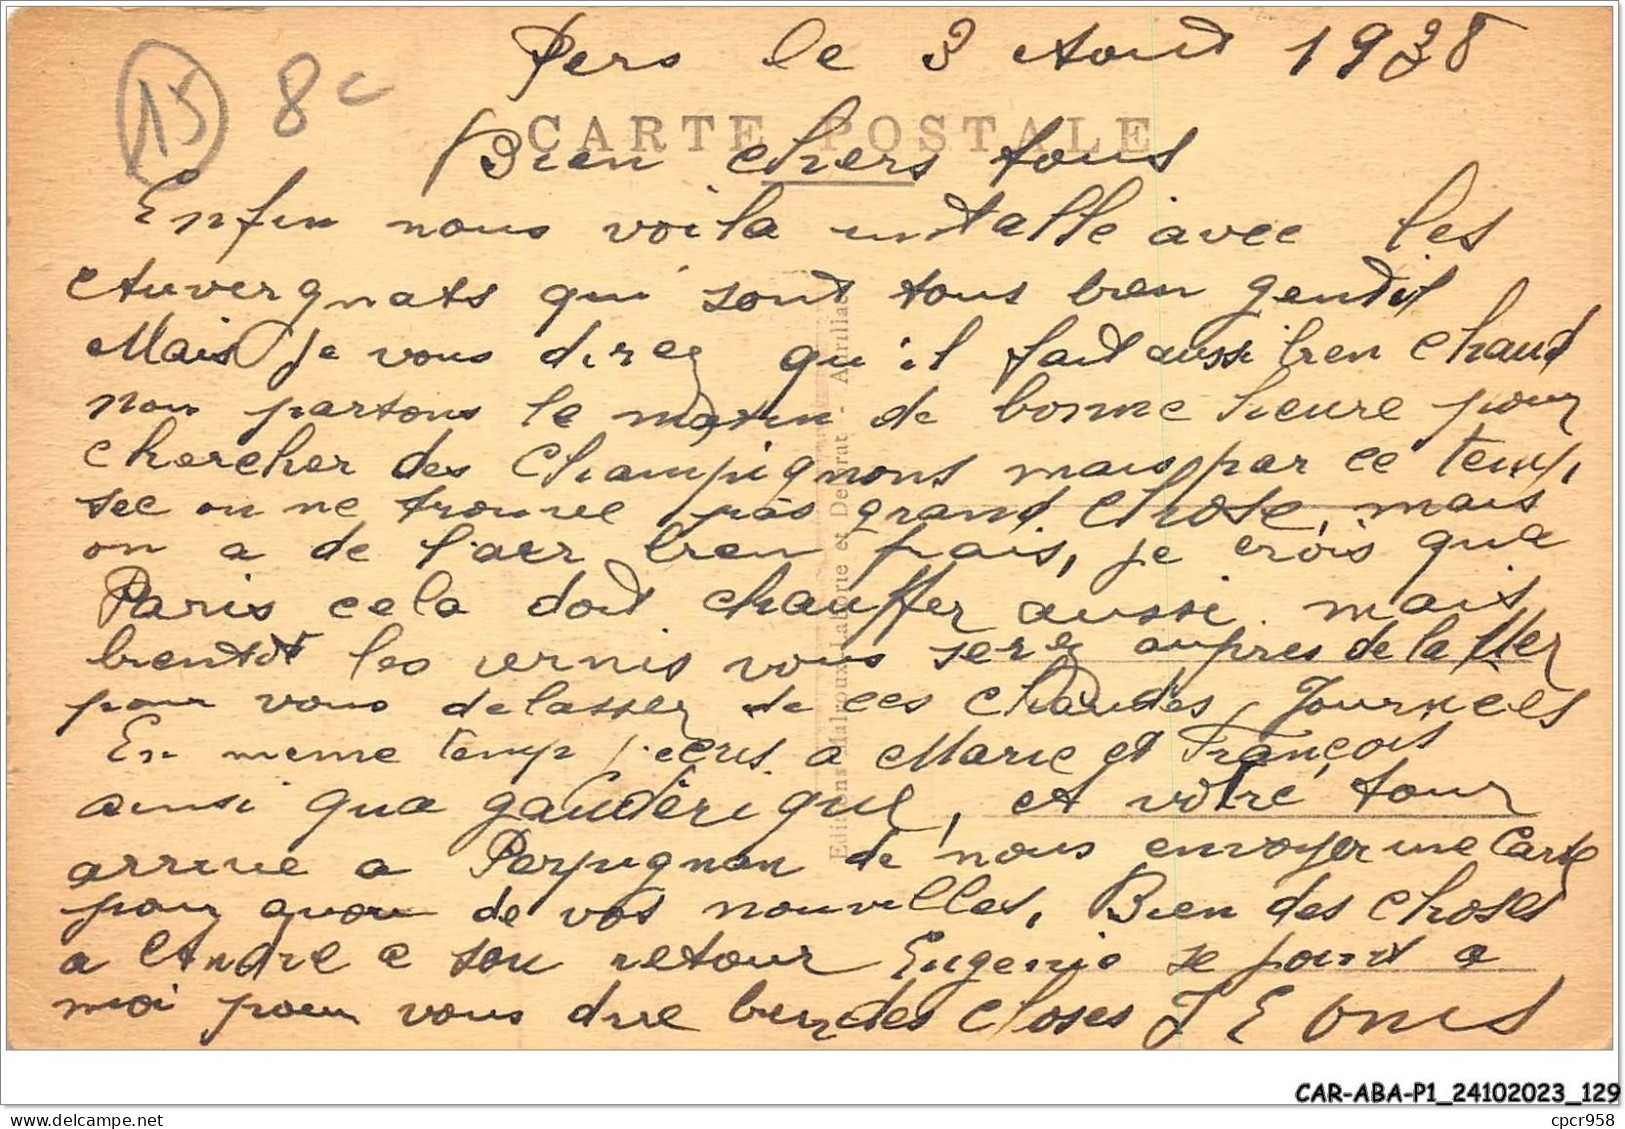 15 8c
Pers le 3 Aout 1938
CARTE POSTALE
Bien chers tous
Enfin nous voila installé avec les
Auvergnats qui sont tous bien gentil
Mais je vous direz qu'il fait aussi bien chaud
nou partons le matin de bonne heure pour
chercher des Champignons mais par ce temp,
sec on ne trouve pas grand chose, mais
on a de l'aer bien frais, je crois que
Paris cela doit chauffer aussi mais
bientôt les vous serez aupres de la Mer
pour vous delasser de ces chaudes Journées
En meme temp j'ecris a Marie et François
ainsi que gaudérique, et votre tour
arrivé a Perpignan de nous envoyer une Carte
pour de vos nouvelles, Bien des choses
a André a son retour Eugenie se joint a
moi pour vous dire bien des choses J E
Editions Malroux-Laborie et Debrat - Aurillac
CAR-ABA-P1_24102023_129
cpcr958